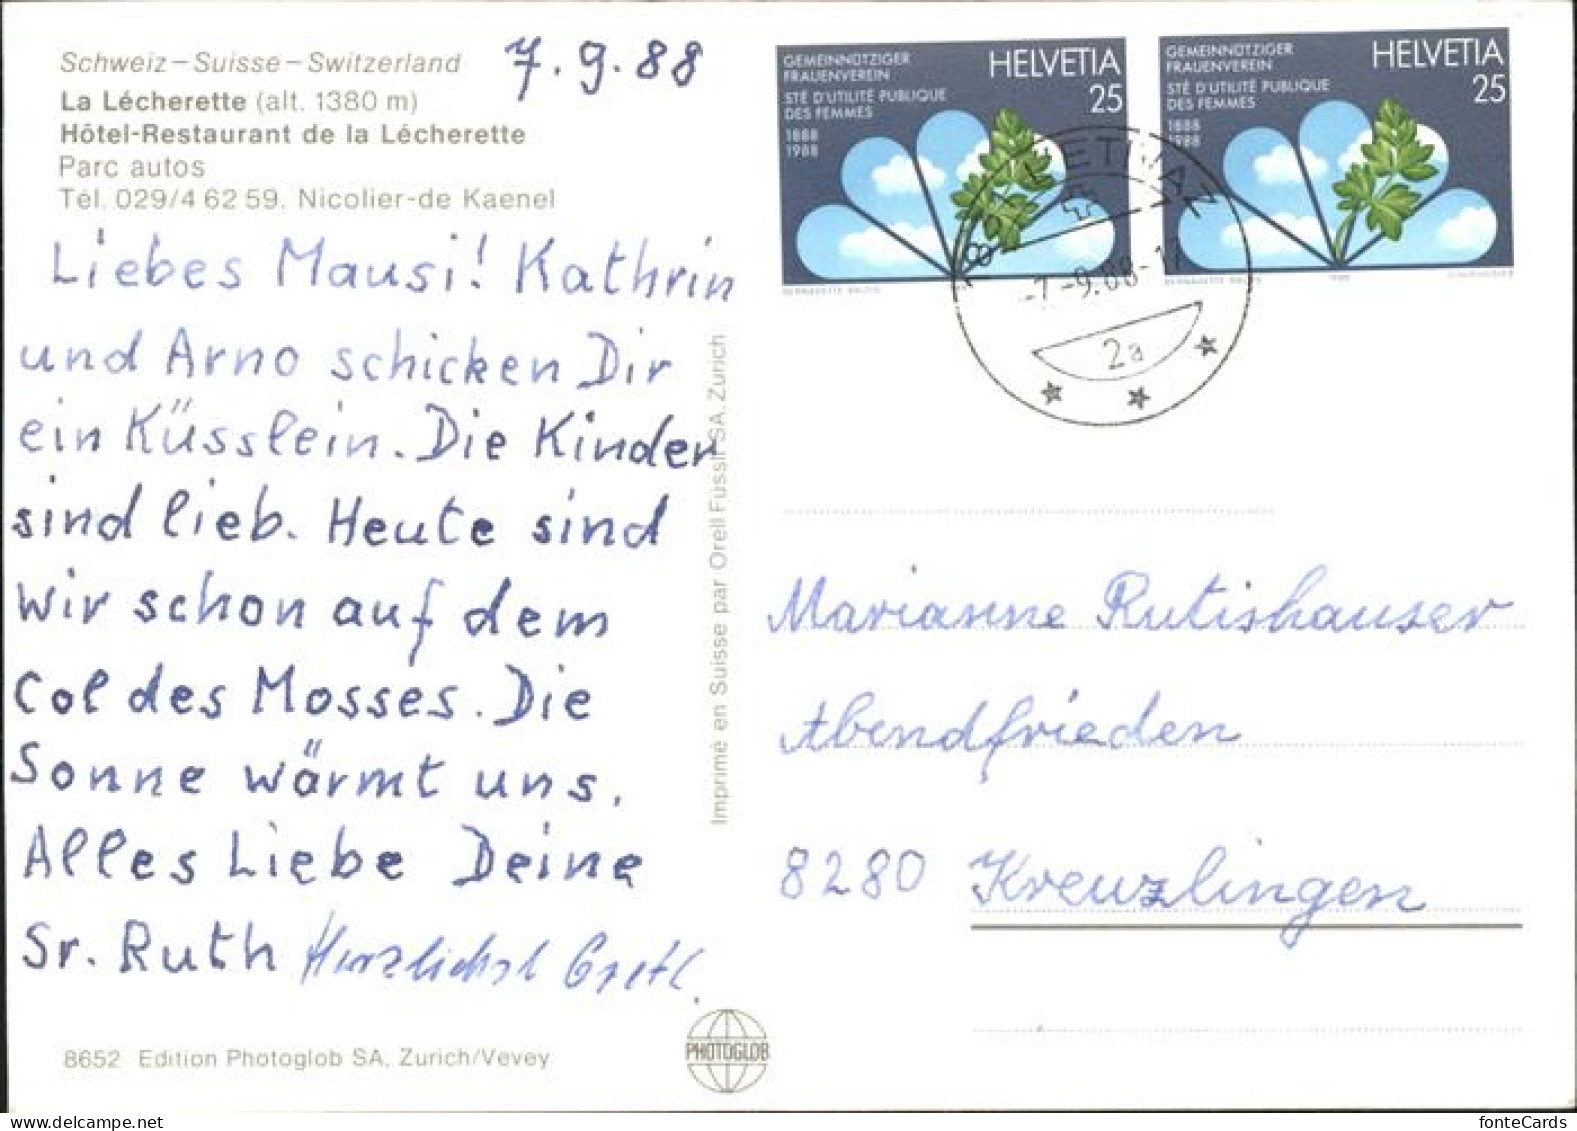 Schweiz – Suisse – Switzerland
7.9.88
La Lécherette (alt. 1380 m)
Hôtel-Restaurant de la Lécherette
Parc autos
Tél. 029/4 62 59. Nicolier-de Kaenel
Liebes Mausi! Kathrin
und Arno schicken Dir
ein Küsslein. Die Kinder
sind lieb. Heute sind
wir schon auf dem
Col des Mosses. Die
Sonne wärmt uns.
Alles Liebe Deine
Sr. Ruth Herzlichst Gretl.
8652 Edition Photoglob SA, Zurich/Vevey
Imprimé en Suisse par Orell Füssli SA. Zurich
PHOTOGLOB
GEMEINNÜTZIGER
FRAUENVEREIN
STÉ D'UTILITÉ PUBLIQUE
DES FEMMES
1888
1988
HELVETIA
25
GEMEINNÜTZIGER
FRAUENVEREIN
STÉ D'UTILITÉ PUBLIQUE
DES FEMMES
1888
1988
HELVETIA
25
-7.-9.88-
2a
Marianne Rutishauser
Abendfrieden
8280 Kreuzlingen
fonteCards
https://www.delcampe.net